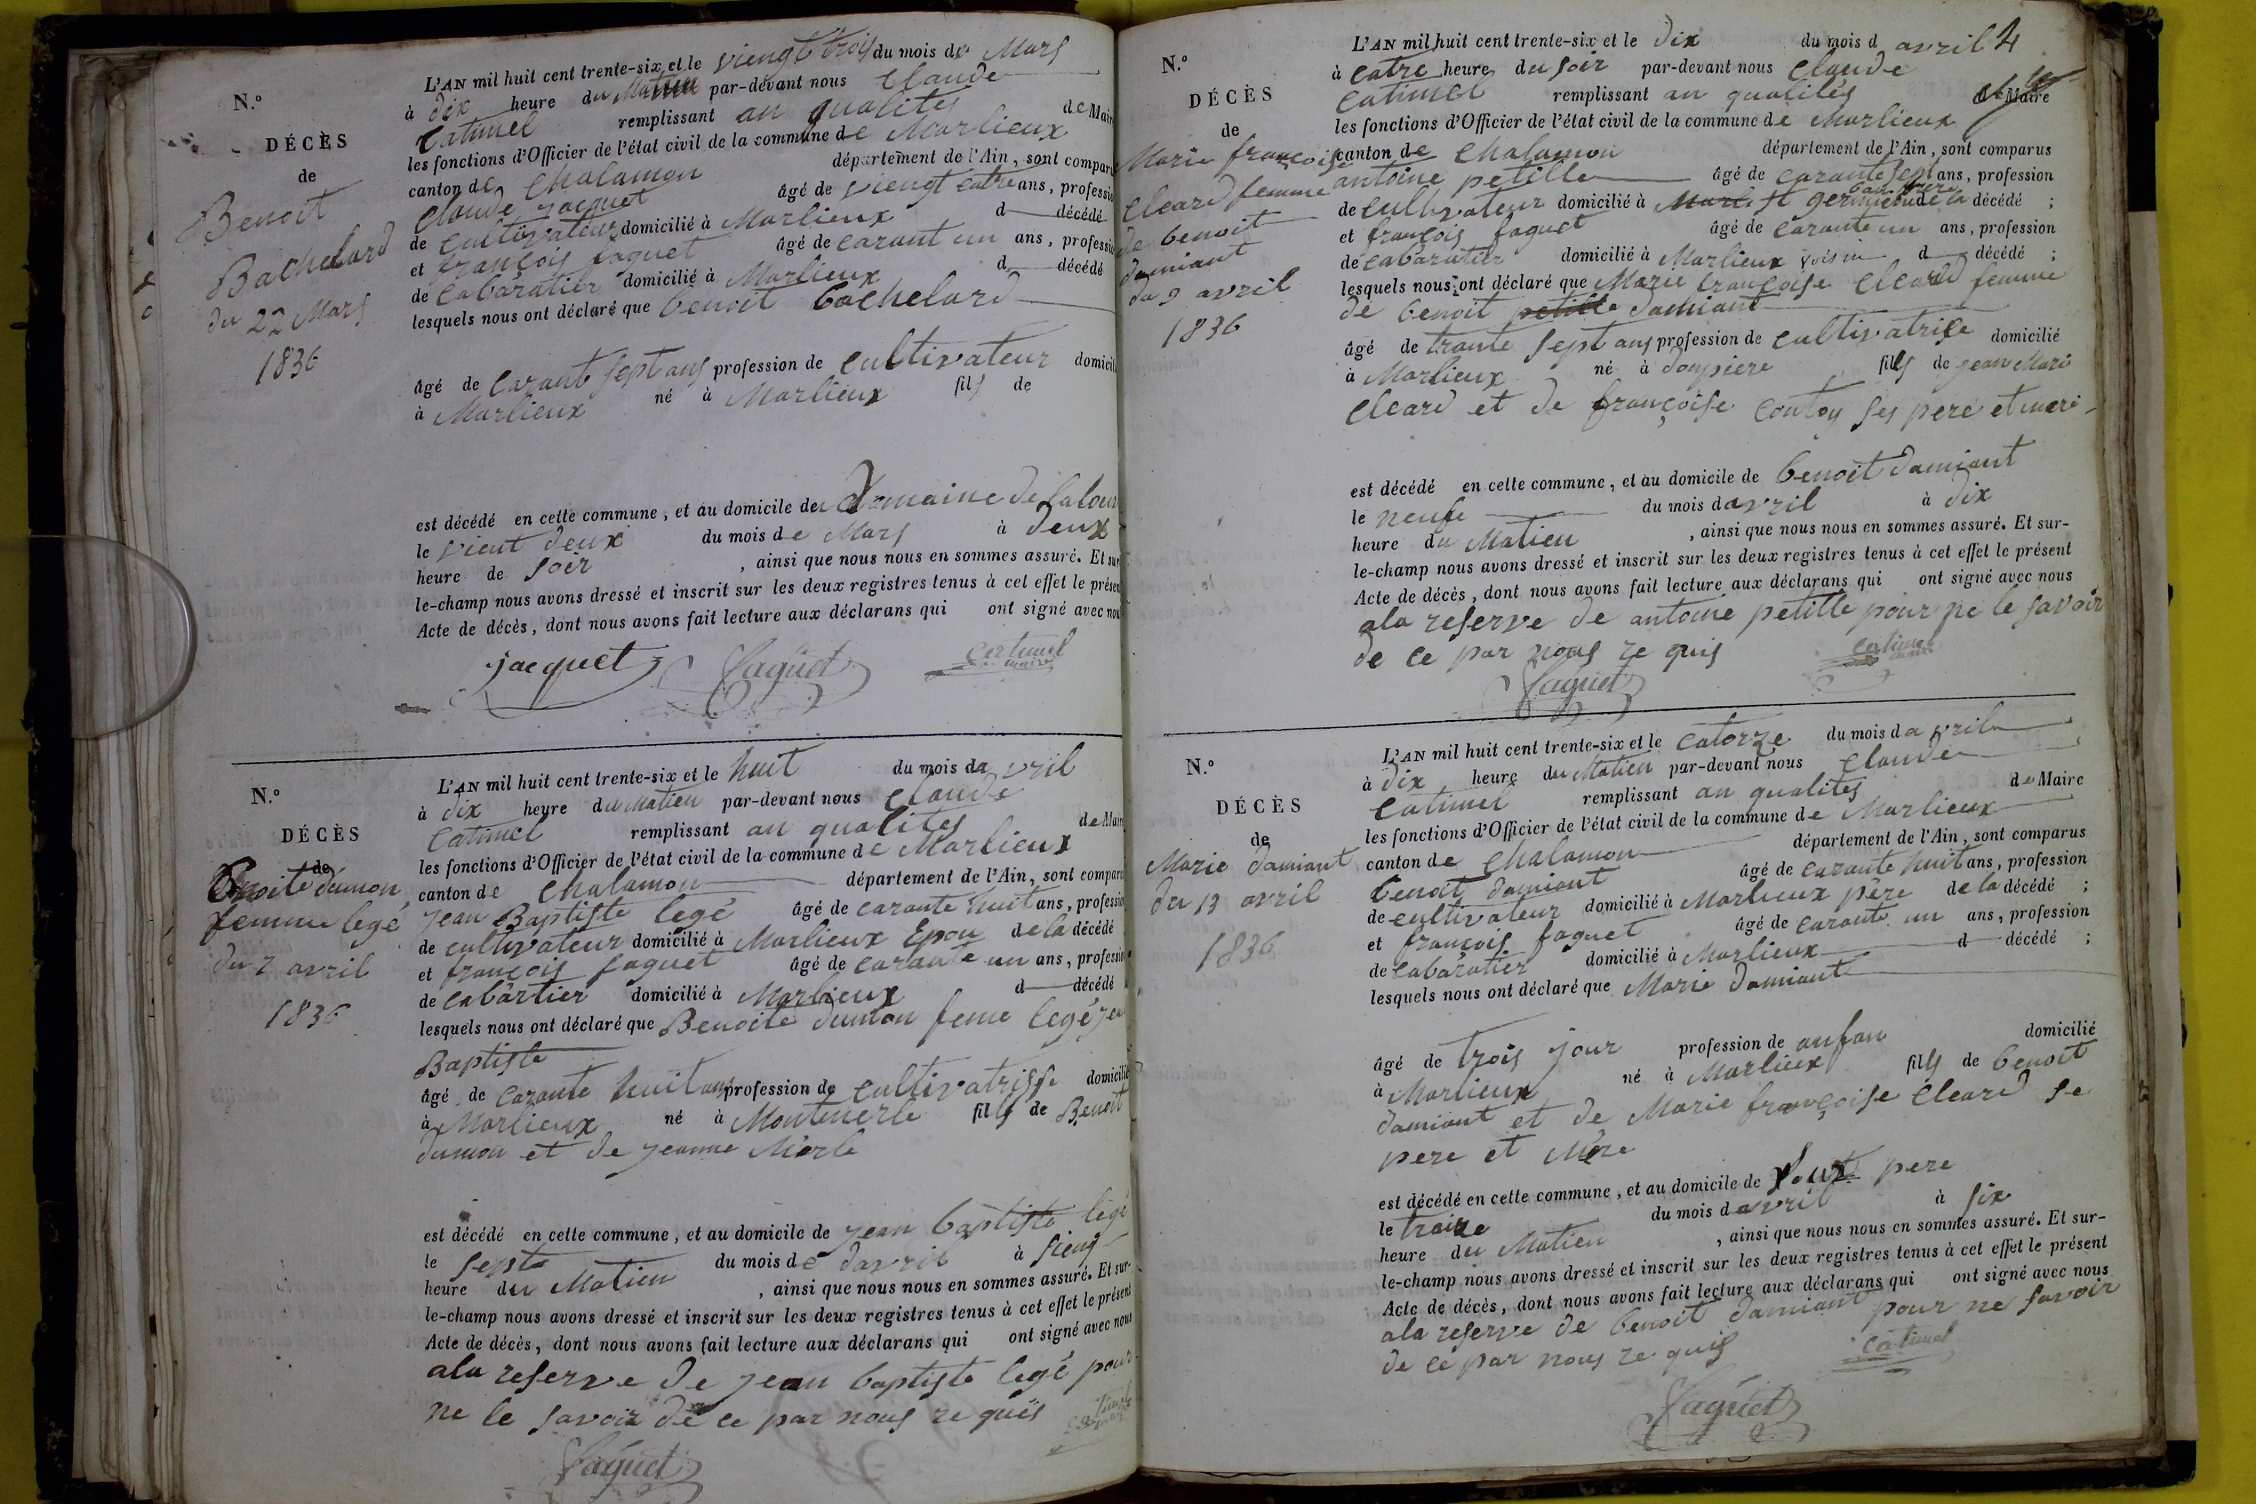 N.°
DÉCÈS
de
Benoit
Bachelard
du 22 Mars
1836
L'AN mil huit cent trente-six et le viengt trois du mois de Mars
à dix heure du Matieu par-devant nous Claude
Catimel remplissant an qualités de Maire
les fonctions d'Officier de l'état civil de la commune de Marlieux
canton de Chalamon département de l'Ain, sont comparu
Claude jacquet âgé de viengt catre ans, professio
de cultivateur domicilié à Marlieux d décédé
et françois faguet âgé de carant un ans, professio
de Cabaratier domicilié à Marlieux d décédé
lesquels nous ont déclaré que benoit bachelard
âgé de carant sept ans profession de cultivateur domicili
à Marlieux né à Marlieux fils de
est décédé en cette commune, et au domicile de domaine de
le vient deux du mois de Mars à deux
heure de soir , ainsi que nous nous en sommes assuré. Et sur
le-champ nous avons dressé et inscrit sur les deux registres tenus à cet effet le présen
Acte de décès, dont nous avons fait lecture aux déclarans qui ont signé avec nou
jacquet faguet Catimel
maire
N.°
DÉCÈS
de
Benoite dumon
femme legé
du 7 avril
1836
L'AN mil huit cent trente-six et le huit du mois davril
à dix heure du Matieu par-devant nous Claude
Catimel remplissant an qualités de Maire
les fonctions d'Officier de l'état civil de la commune de Marlieux
canton de Chalamon département de l'Ain, sont comparu
jean Baptiste legé âgé de carante huit ans, professio
de cultivateur domicilié à Marlieux Epou de la décédé
et françois faguet âgé de carante un ans, professio
de cabartier domicilié à Marlieux d décédé
lesquels nous ont déclaré que Benoite dumon feme legé jean
Baptiste
âgé de carante huit ans profession de cultivatrisse domicilié
à Marlieux né à Montmerle fills de Benoit
dumon et de jeanne Merle
est décédé en cette commune, et au domicile de jean baptiste legé
le sept du mois de davril à sienq
heure du Matieu , ainsi que nous nous en sommes assuré. Et sur-
le-champ nous avons dressé et inscrit sur les deux registres tenus à cet effet le présent
Acte de décès, dont nous avons fait lecture aux déclarans qui ont signé avec nous
ala reserve de jean baptiste legé pour
ne le savoir de ce par nous re quis
faguet
N.°
DÉCÈS
de
Marie françoise
Cleard femme
de benoit
damiant
du 9 avril
1836
4
L'AN mil huit cent trente-six et le dix du mois d avril
à catre heure du soir par-devant nous Claude
Catimel remplissant an qualités de Maire
les fonctions d'Officier de l'état civil de la commune de Marlieux
canton de Chalamon département de l'Ain, sont comparus
antoine petille âgé de carante sept ans, profession
de cultivateur domicilié à St germain beau frere de la décédé ;
et françois faguet âgé de carante un ans, profession
de cabaratier domicilié à Marlieux voisin d décédé ;
lesquels nous ont déclaré que Marie françoise Cleard femme
de benoit petille damiant
âgé de trante sept ans profession de cultivatrice domicilié
à Marlieux né à dompiere fills de jean Marie
Cleard et de françoise contoy ses pere et mere
est décédé en cette commune, et au domicile de benoit damiant
le neufe du mois d avril à dix
heure du Matieu , ainsi que nous nous en sommes assuré. Et sur-
le-champ nous avons dressé et inscrit sur les deux registres tenus à cet effet le présent
Acte de décès, dont nous avons fait lecture aux déclarans qui ont signé avec nous
ala reserve de antoine petille pour ne le savoir
de ce par nous re quis Catimel
maire
faguet
N.°
DÉCÈS
de
Marie damiant
du 13 avril
1836
L'AN mil huit cent trente-six et le catorze du mois d avril
à dix heure du Matieu par-devant nous Claude
Catimel remplissant an qualités de Maire
les fonctions d'Officier de l'état civil de la commune de Marlieux
canton de Chalamon département de l'Ain, sont comparus
benoit damiant âgé de carante huit ans, profession
de cultivateur domicilié à Marlieux père de la décédé ;
et françois faguet âgé de carante un ans, profession
de cabaratier domicilié à Marlieux d décédé ;
lesquels nous ont déclaré que Marie damiant
âgé de trois jour profession de anfan domicilié
à Marlieux né à Marlieux fills de benoit
damiant et de Marie françoise Cleard se
pere et Mère
est décédé en cette commune, et au domicile de pere
le traize du mois d avril à six
heure du Matieu , ainsi que nous nous en sommes assuré. Et sur-
le-champ nous avons dressé et inscrit sur les deux registres tenus à cet effet le présent
Acte de décès, dont nous avons fait lecture aux déclarans qui ont signé avec nous
ala reserve de benoit damiant pour ne savoir
de ce par nous re quis Catimel
faguet